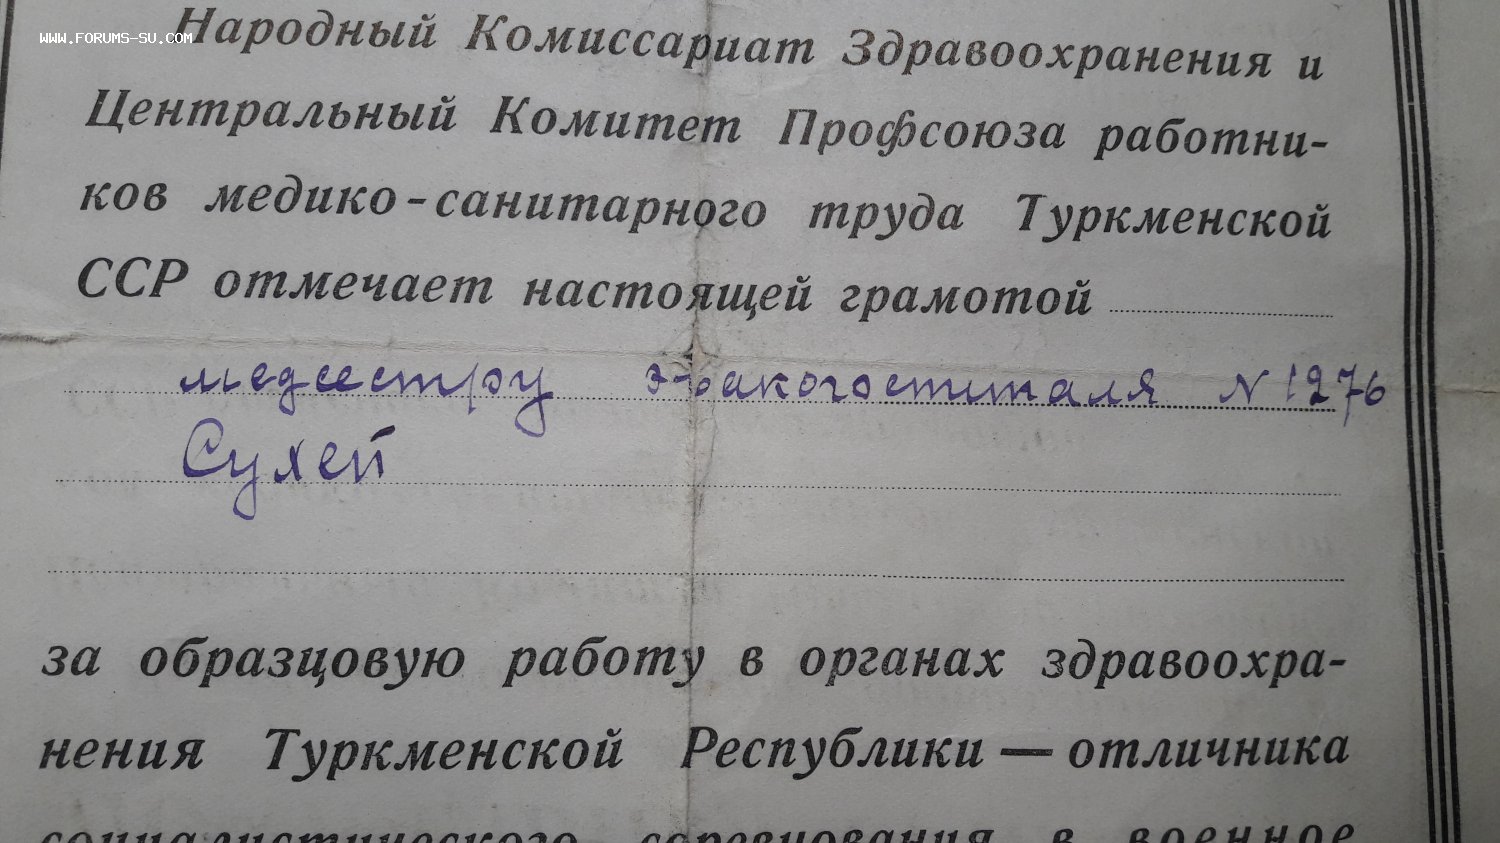 www.forums-su.com
Народный Комиссариат Здравоохранения и
Центральный Комитет Профсоюза работни-
ков медико-санитарного труда Туркменской
ССР отмечает настоящей грамотой
медсестру эвакогоспиталя N 1276
Сухей
за образцовую работу в органах здравоохра-
нения Туркменской Республики — отличника
социалистического соревнования в военное